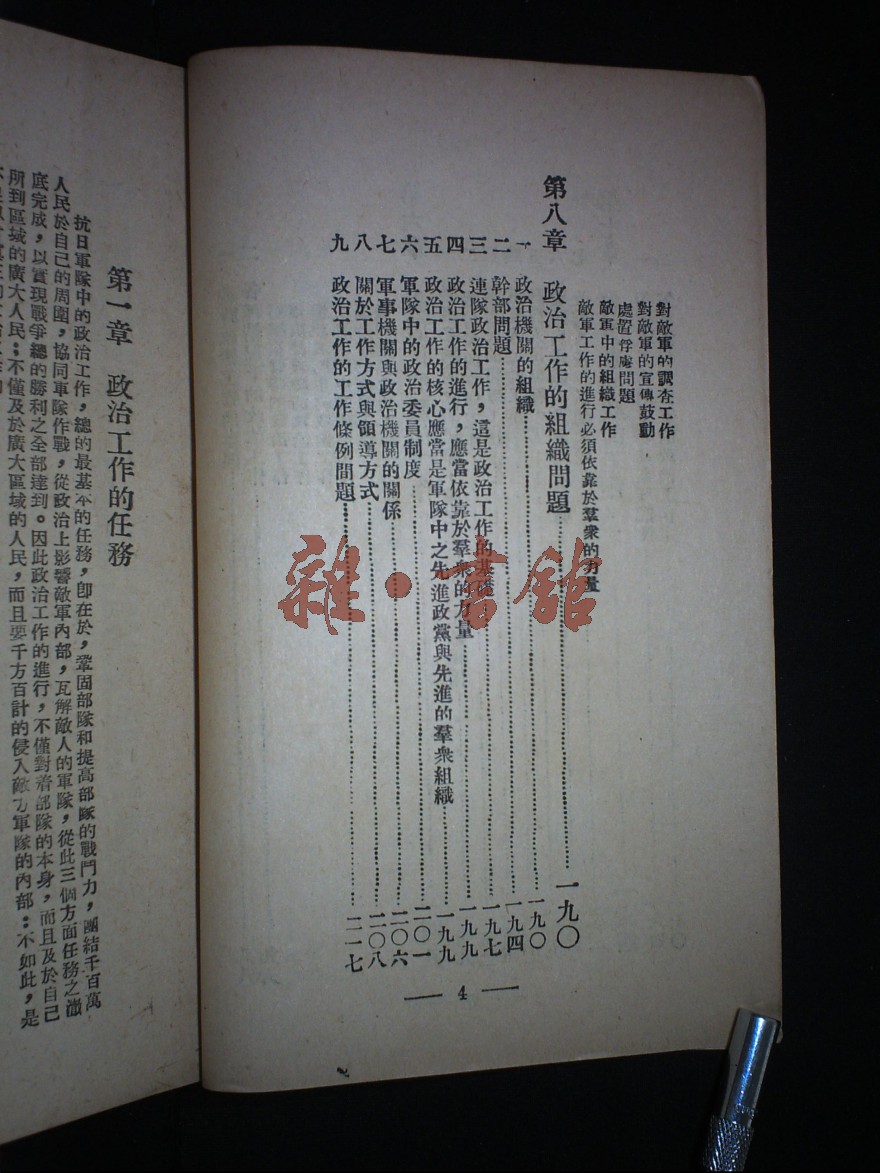 對敵軍的調查工作
對敵軍的宣傳鼓動
處置俘虜問題
敵軍中的組織工作
敵軍工作的進行必須依靠於羣衆的力量
第八章 政治工作的組織問題……一九〇
一 政治機關的組織……一九〇
二 幹部問題……一九四
三 連隊政治工作，這是政治工作的基礎……一九七
四 政治工作的進行，應當依靠於羣衆的力量……一九九
五 政治工作的核心應當是軍隊中之先進政黨與先進的羣衆組織……一九九
六 軍隊中的政治委員制度……二〇一
七 軍事機關與政治機關的關係……二〇六
八 關於工作方式與領導方式……二〇八
九 政治工作的工作條例問題……二一七
— 4 —
雜·書館
第一章 政治工作的任務
抗日軍隊中的政治工作，總的最基本的任務，卽在於，鞏固部隊和提高部隊的戰鬥力，團結千百萬
人民於自己的周圍，協同軍隊作戰，從政治上影響敵軍內部，瓦解敵人的軍隊，從此三個方面任務之澈
底完成，以實現戰爭總的勝利之全部達到。因此政治工作的進行，不僅對着部隊的本身，而且及於自己
所到區域的廣大人民；不僅及於廣大區域的人民，而且要千方百計的侵入敵方軍隊的內部；不如此，是